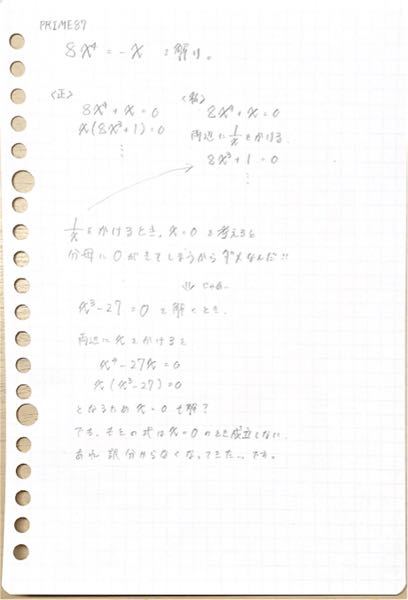 PRIME87
8x⁴ = -x を解け。
<正>
8x⁴ + x = 0
x(8x³+1) = 0
⋮
<私>
8x⁴ + x = 0
両辺に 1/x をかける
8x³ + 1 = 0
⋮
1/x をかけるとき、x = 0 を考えると
分母に0がきてしまうからダメなんだ!!
⇓ じゃあ…
x³ - 27 = 0 を解くとき、
両辺に x をかけると
x⁴ - 27x = 0
x(x³-27) = 0
となるため x = 0 も解?
でも、もとの式は x = 0 のとき成立しない。
あれ 訳分からなくなってきた…